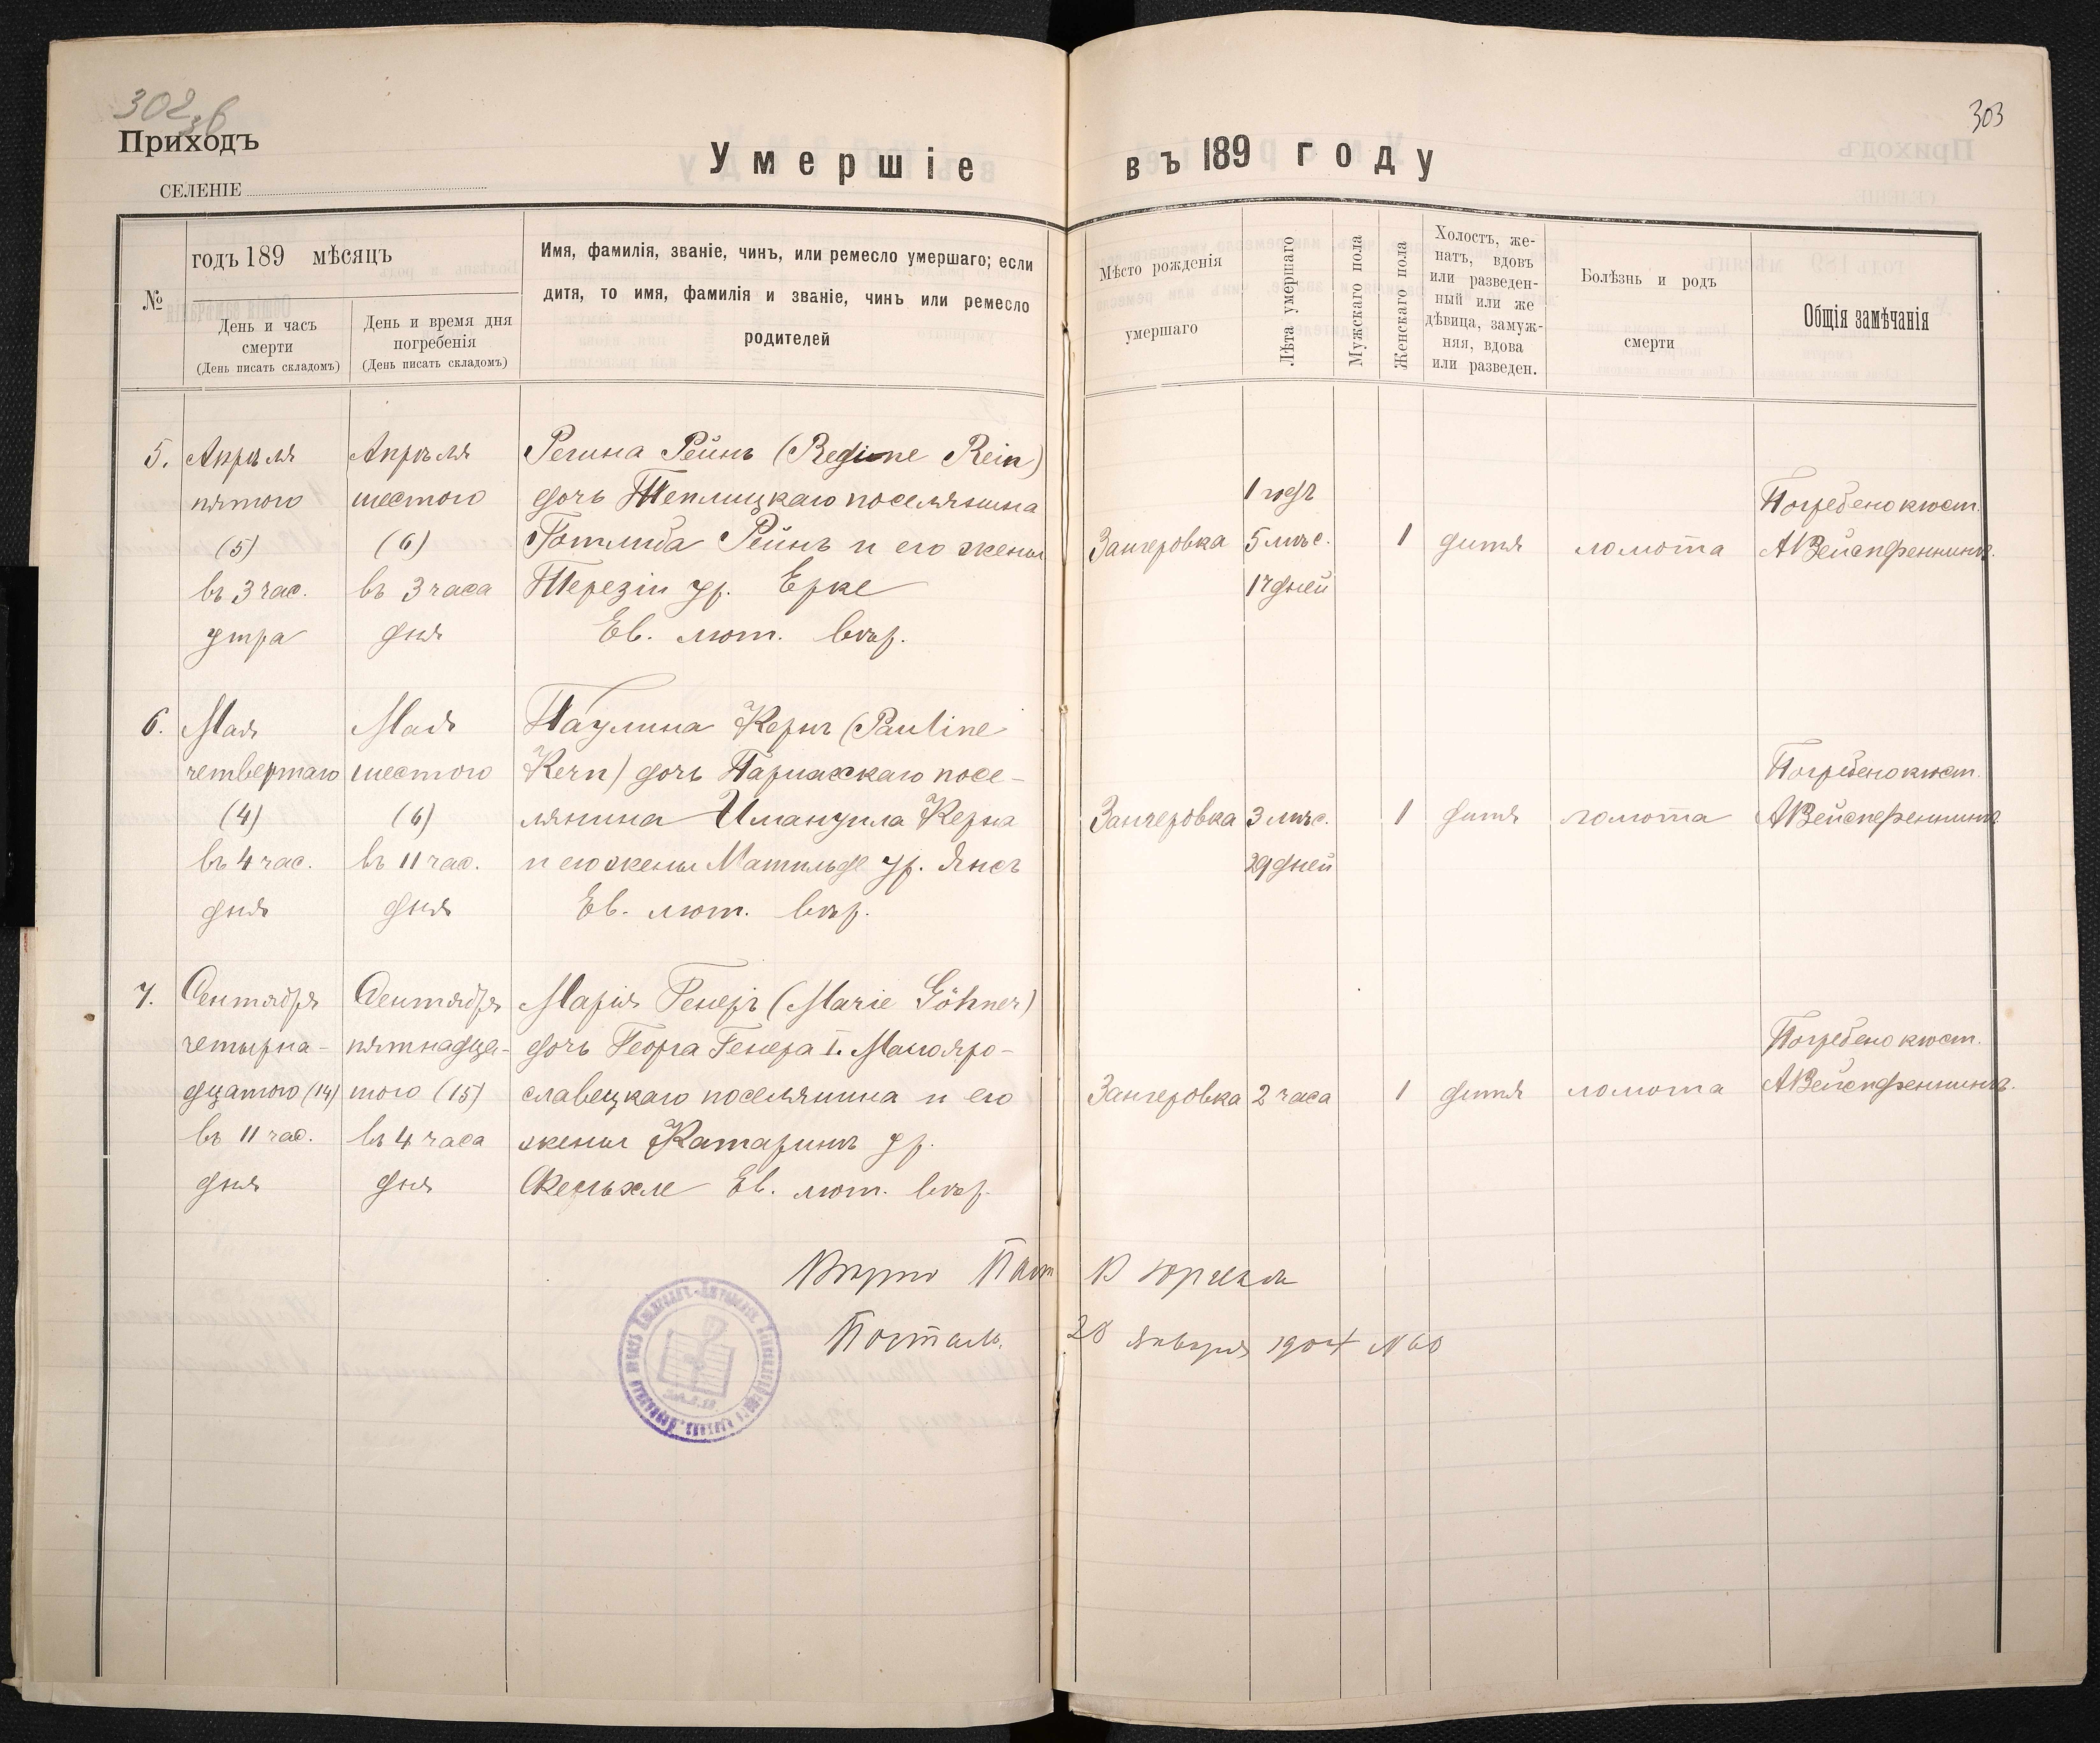 302
Приходъ
303
Умершіе въ 189 году
СЕЛЕНІЕ
№
годъ 189 мѣсяцъ
День и часъ
смерти
(День писать складомъ)
День и время дня
погребенія
(День писать складомъ)
Имя, фамилія, званіе, чинъ, или ремесло умершаго; если
дитя, то имя, фамилія и званіе, чинъ или ремесло
родителей
Мѣсто рожденія
умершаго
Лѣта умершаго
Мужскаго пола
Женскаго пола
Холостъ, же-
натъ, вдовъ
или разведен-
ный или же
дѣвица, замуж-
няя, вдова
или разведен.
Болѣзнь и родъ
смерти
Общія замѣчанія
5.
Апрѣля
пятого
(5)
въ 3 час.
утра
Апрѣля
шестого
(6)
въ 3 часа
дня
Регина Рейнъ (Regine Rein)
дочь Теплицкаго поселянина
Готлиба Рейнъ и его жены
Терезіи ур. Ерке
Ев. лют. вѣр.
Зангеровка
1 годъ
5 мѣс.
17 дней
1
дитя
ломота
Погребено кюст.
А Вейспфеннингъ.
6.
Мая
четвертаго
(4)
въ 4 час.
дня
Мая
шестого
(6)
въ 11 час.
дня
Паулина Кернъ (Pauline
Kern) дочь Парижскаго посе-
лянина Имануила Керна
и его жены Матильде ур. Янсъ
Ев. лют. вѣр.
Зангеровка
3 мѣс.
29 дней
1
дитя
ломота
Погребено кюст.
А Вейспфеннингъ
7.
Сентября
четырна-
дцатого (14)
въ 11 час.
дня
Сентября
пятнадца-
того (15)
въ 4 часа
дня
Марія Генеръ (Marie Göhner)
дочь Георга Генера I. Малояро-
славецкаго поселянина и его
жены Катаринѣ ур.
Ев. лют. вѣр.
Зангеровка
2 часа
1
дитя
ломота
Погребено кюст.
А Вейспфеннингъ.
Вѣрно Паст
Посталь. 28 Января 1904 N 60